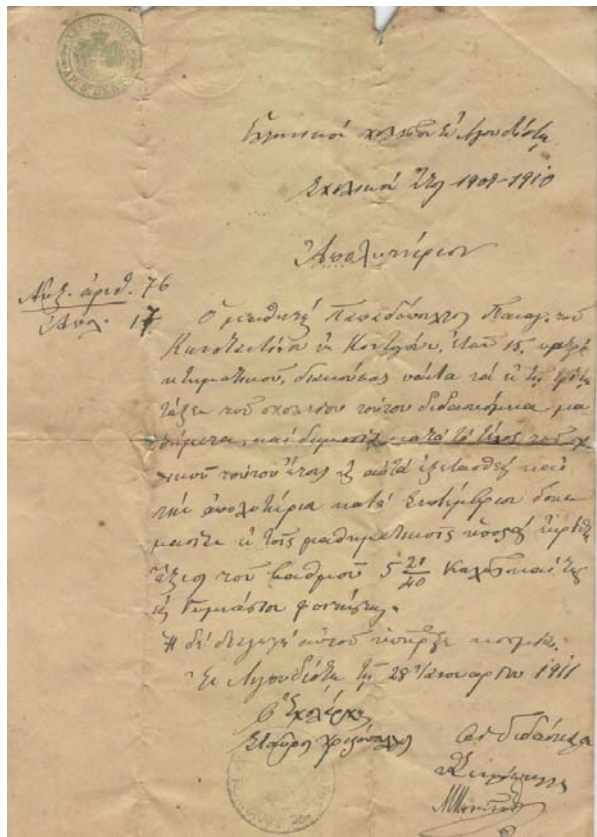 Ἑλληνικὸν σχολεῖον ἐν Λιγουδίστῃ
Σχολικὸν ἔτος 1909-1910
Ἀπολυτήριον
Αὔξ. ἀριθ. 76
17
Ὁ μαθητὴς Παπαδόπουλος Παναγ. τοῦ
Κωνσταντίνου ἐκ ἐτῶν 15,
κτηματικοῦ, διακούσας πάντα τὰ ἐν τῇ τρίτῃ
τάξει τοῦ σχολείου τούτου διδασκόμενα μα
θήματα, καὶ δημοσίᾳ κατὰ τὸ τέλος τοῦ σχ
λικοῦ τούτου ἔτους εἰς αὐτὰ ἐξετασθεὶς καὶ
τὴν ἀπολυτήρια κατὰ Σεπτέμβριον δοκι
μασίαν ἐν τοῖς μαθηματικοῖς ὑποστὰς ἐκρίθη
ἄξιος τοῦ βαθμοῦ 5 21/40 Καλῶς καὶ τῆς
εἰς Γυμνάσιον φοιτήσεως.
Ἡ δὲ διαγωγὴ αὐτοῦ ὑπῆρξε κοσμία.
Ἐν Λιγουδίστῃ τῇ 28 Ἰανουαρίου 1911
Ὁ Σχολάρχης
Σταῦρος
Οἱ διδάσκαλοι